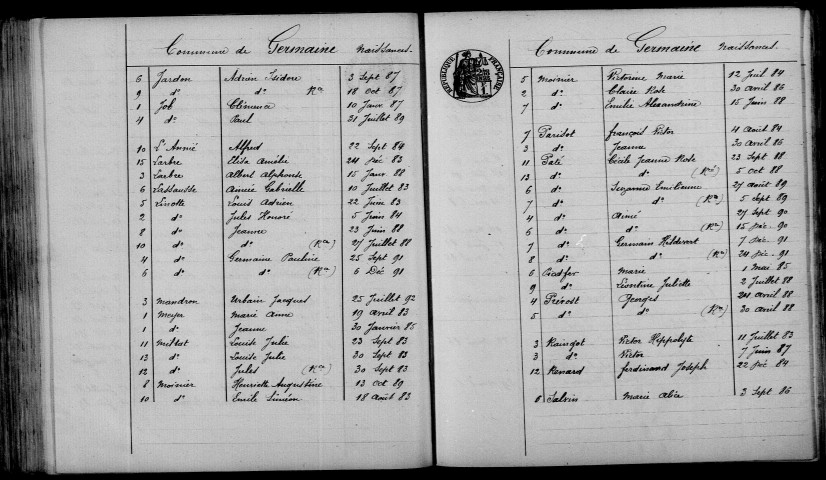 Commune de Germaine Naissances.
6 Jardon Adrien Isidore 3 Sept 87
9 do do Ron 18 Oct 87
1 Job Clémence 10 Janv 87
4 do Paul 31 Juillet 89
10 L'Année Alfred 22 Sept 89
15 Larbre Elisa Amélie 24 Déc 83
3 Larbre Albert Alphonse 15 Janv 88
6 Lassausse Aimée Gabrielle 10 Juillet 83
5 Linotte Louis Adrien 22 Juin 83
2 do Jules Honoré 5 Juin 84
8 do Jeanne 23 Juin 88
10 do do (Ron) 27 Juillet 88
4 do Germaine Pauline 25 Sept 91
6 do do (Ron) 6 Déc 91
3 Mandron Urbain Jacques 25 Juillet 92
1 Meyer Marie Anne 19 Avril 83
1 do Jeanne 30 Janvier 85
11 Millot Louise Julie 23 Sept 83
13 do Louise Julie 30 Sept 83
12 do Jules (Ron) 30 Sept 83
8 Moinier Henriette Augustine 13 Oct 89
10 do Emile Siméon 18 Août 83
Commune de Germaine Naissances.
RÉPUBLIQUE FRANÇAISE
5 Moinier Victorine Marie 12 Juil 84
2 do Claire Rose 30 Avril 86
7 do Emilie Alexandrine 15 Juin 88
7 Parisot François Victor 4 Août 84
3 do Jeanne 30 Avril 86
11 Paté Cécile Jeanne Rose 23 Sept 88
13 do do (Ron) 5 Oct 88
6 do Suzanne Emilienne 27 Août 89
7 do do (Ron) 5 Sept 89
4 do Aimé 27 Sept 90
6 do do (Ron) 15 Déc 90
7 do Germain Hildevert 7 Déc 91
8 do do (Ron) 24 Déc 91
6 Marie 1 Mai 85
9 do Léontine Juliette 2 Juillet 88
4 Prévost Georges 24 Avril 88
5 do do (Ron) 30 Avril 88
3 Raingot Victor Hippolyte 11 Juillet 83
3 do Victor 7 Juin 87
12 Renard Ferdinand Joseph 22 Déc 84
8 Salvin Marie Alice 3 Sept 86